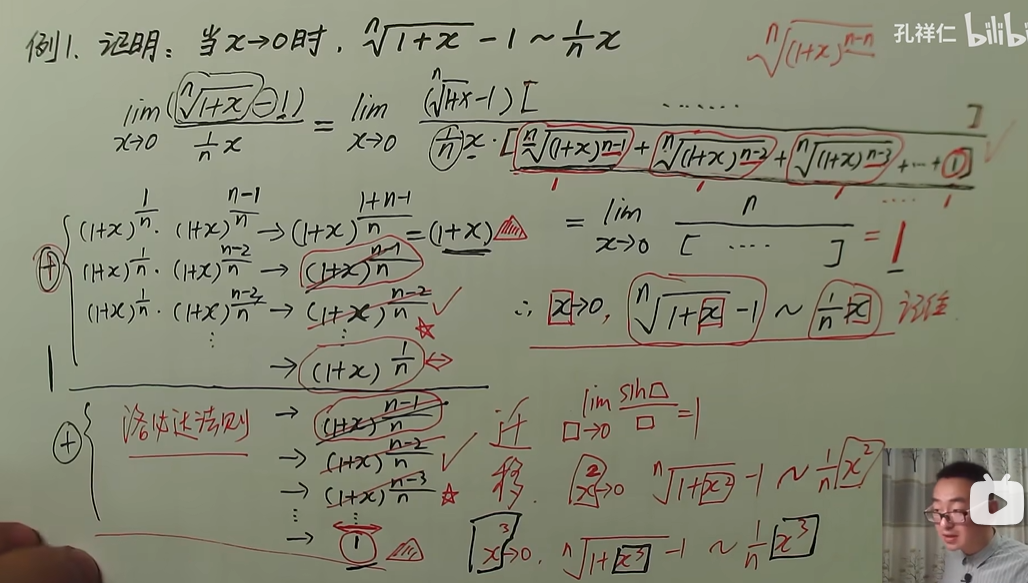 例1. 证明: 当x→0时. ⁿ√(1+x) -1 ~ 1/n x
ⁿ√((1+x)^(n-n))
孔祥仁 bilibili
lim x→0 (ⁿ√(1+x) -1) / (1/n x) = lim x→0 (ⁿ√(1+x) -1)[ ...... ] / (1/n x·[ⁿ√((1+x)^(n-1)) + ⁿ√((1+x)^(n-2)) + ⁿ√((1+x)^(n-3)) + ... + 1])
1 1 1 .... 1
(1+x)^(1/n) · (1+x)^((n-1)/n) → (1+x)^((1+n-1)/n) = (1+x)
= lim x→0 n / [ .... ] = 1
⊕ (1+x)^(1/n) · (1+x)^((n-2)/n) → (1+x)^((n-1)/n)
(1+x)^(1/n) · (1+x)^((n-3)/n) → (1+x)^((n-2)/n)
⋮ ⋮
∴ x→0, ⁿ√(1+x) -1 ~ 1/n x 记住.
→ (1+x)^(1/n) ⇔
⊕ 洛必达法则 → (1+x)^((n-1)/n)
→ (1+x)^((n-2)/n)
→ (1+x)^((n-3)/n)
⋮ ⋮
→ 1
迁移.
lim □→0 sin□/□ = 1
x²→0 ⁿ√(1+x²) -1 ~ 1/n x²
x³→0. ⁿ√(1+x³) -1 ~ 1/n x³